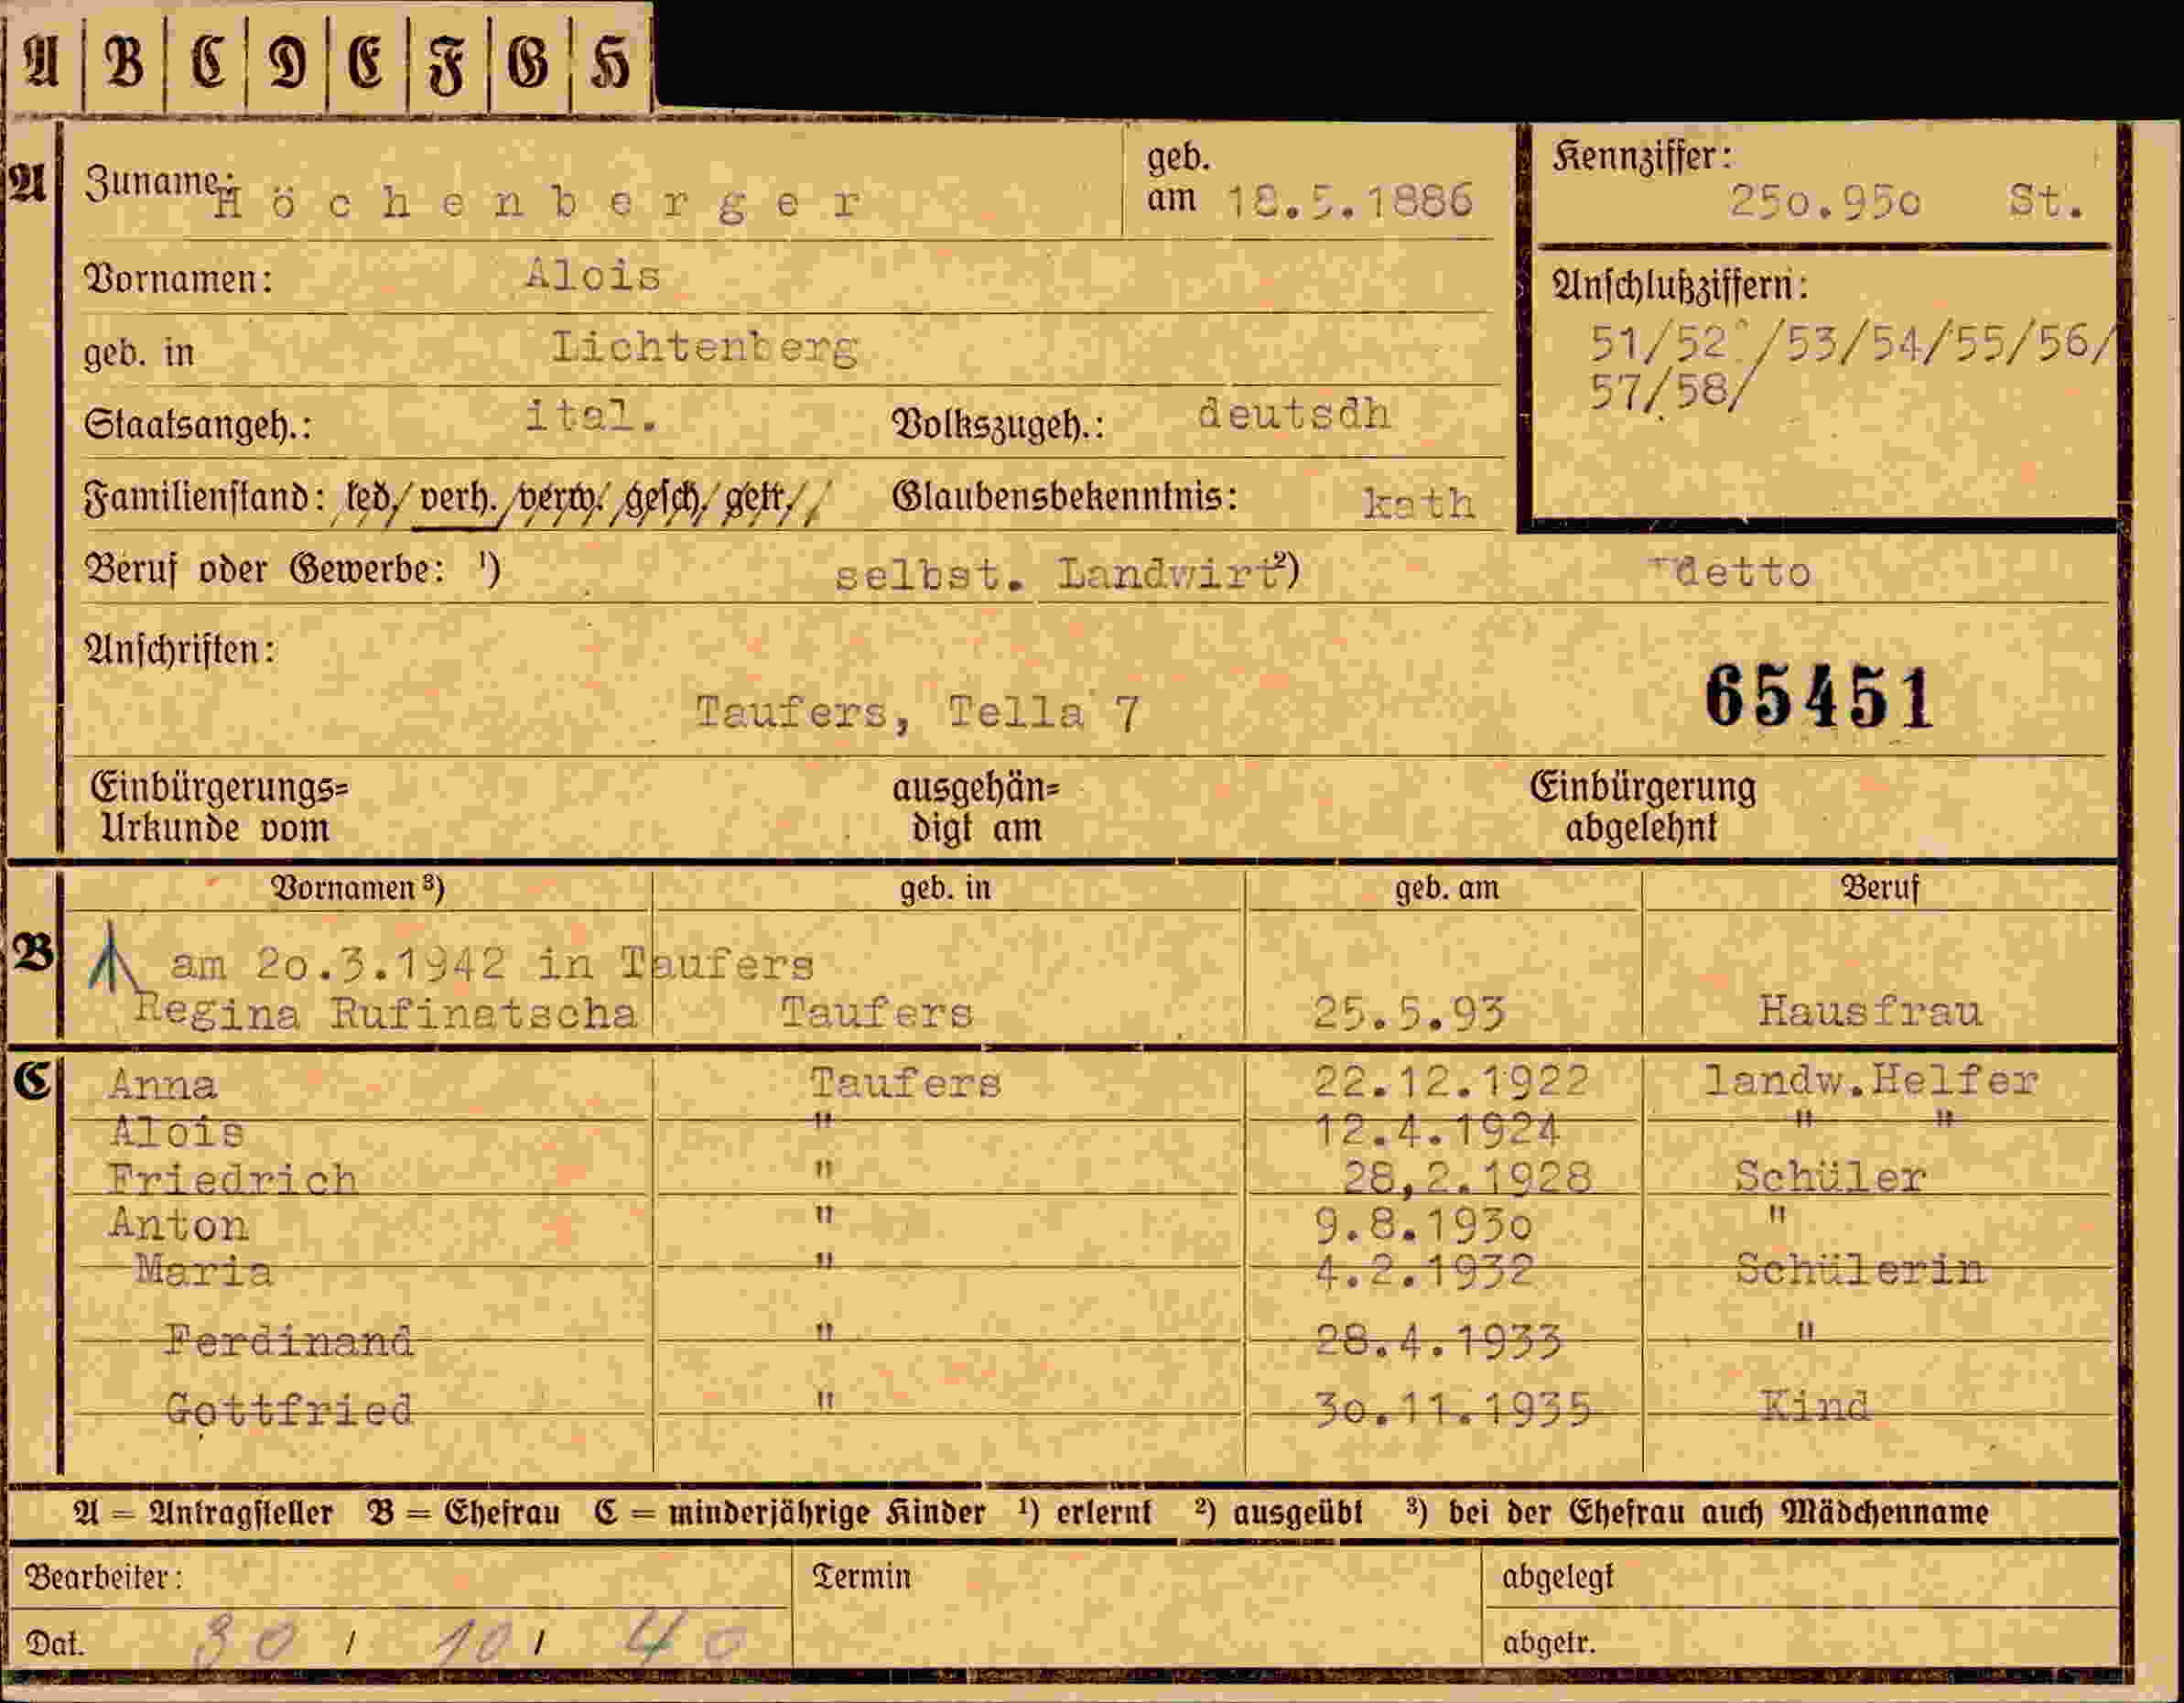 A B C D E F G H
A Zuname: Höchenberger geb. am 18.5.1886 Kennziffer: 250.950 St.
Vornamen: Alois Anschlußziffern:
geb. in Lichtenberg 51/52 /53/54/55/56/
57/58/
Staatsangeh.: ital. Volkszugeh.: deutsdh
Familienstand: led/ verh. /verw./ gesch/ getr// Glaubensbekenntnis: kath
Beruf oder Gewerbe: 1) selbst. Landwirt 2) detto
Anschriften:
65451
Taufers, Tella 7
Einbürgerungs= ausgehän= Einbürgerung
Urkunde vom digt am abgelehnt
Vornamen 3) geb. in geb. am Beruf
B am 20.3.1942 in Taufers
Regina Rufinatscha Taufers 25.5.93 Hausfrau
C Anna Taufers 22.12.1922 landw.Helfer
Alois " 12.4.1924 " "
Friedrich " 28,2.1928 Schüler
Anton " 9.8.1930 "
Maria " 4.2.1932 Schülerin
Ferdinand " 28.4.1933 "
Gottfried " 30.11.1935 Kind
A = Antragsteller B = Ehefrau C = minderjährige Kinder 1) erlernt 2) ausgeübt 3) bei der Ehefrau auch Mädchenname
Bearbeiter: Termin abgelegt
Dat. 30 / 10 / 40 abgetr.